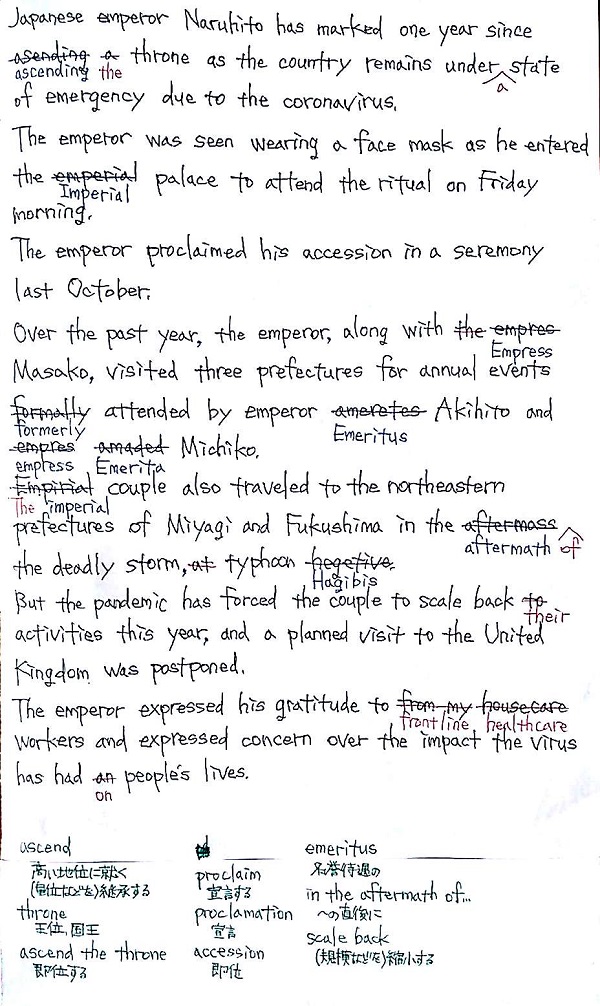 Japanese emperor Naruhito has marked one year since
asending a throne as the country remains under state
ascending the a
of emergency due to the coronavirus.
The emperor was seen wearing a face mask as he entered
the emperial palace to attend the ritual on Friday
Imperial
morning.
The emperor proclaimed his accession in a seremony
last October.
Over the past year, the emperor, along with the empres
Empress
Masako, visited three prefectures for annual events
formally attended by emperor ameretes Akihito and
formerly Emeritus
empres amaded Michiko.
empress Emerita
Empirial couple also traveled to the northeastern
The imperial
prefectures of Miyagi and Fukushima in the aftermass
aftermath of
the deadly storm, at typhoon hegetive.
Hagibis
But the pandemic has forced the couple to scale back to
their
activities this year, and a planned visit to the United
Kingdom was postponed.
The emperor expressed his gratitude to from my housecare
frontline healthcare
workers and expressed concern over the impact the virus
has had an people's lives.
on
ascend emeritus
高い地位に就く 名誉待遇の
(皇位などを)継承する
proclaim
宣言する
in the aftermath of...
への直後に
throne
王位, 国王
proclamation
宣言
scale back
(規模などを)縮小する
ascend the throne
即位する
accession
即位